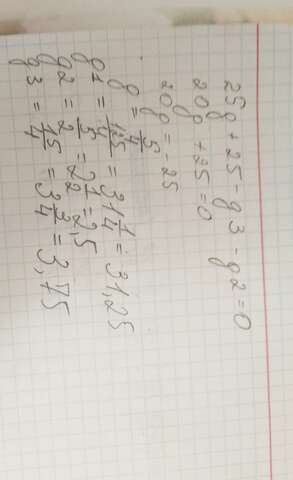 25g + 25 - g3 - g2 = 0
20g + 25 = 0
20g = -25
g = 5/4
g1 = 125/4 = 31 1/4 = 31,25
g2 = 5/2 = 2 1/2 = 2,5
g3 = 15/4 = 3 3/4 = 3,75